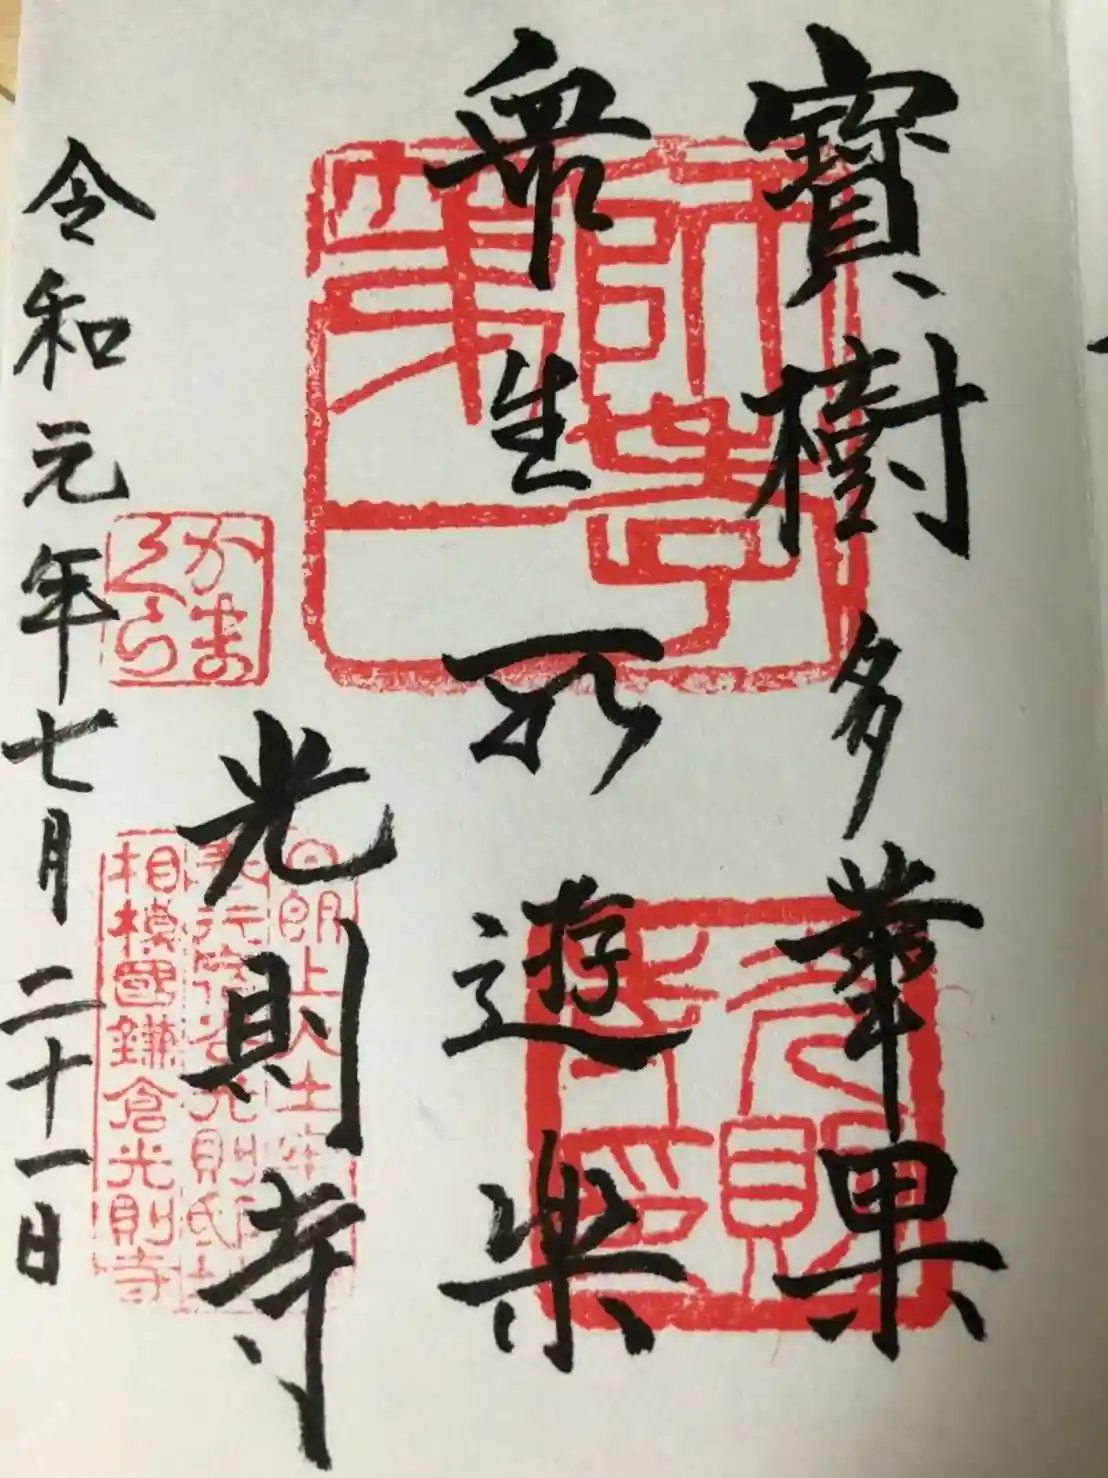 寶樹多華果
衆生所遊樂
光則寺
令和元年七月二十一日
師孝
第一
かま
くら
相模國鎌倉光則寺